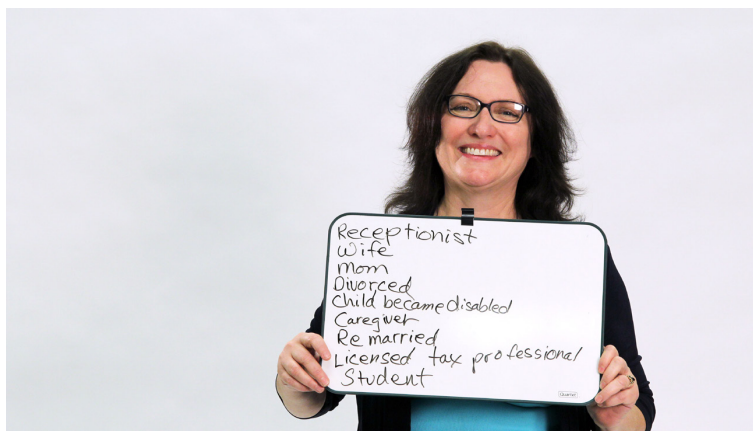 Receptionist
Wife
Mom
Divorced
Child became disabled
Caregiver
Remarried
Licensed tax professional
Student
Quartet